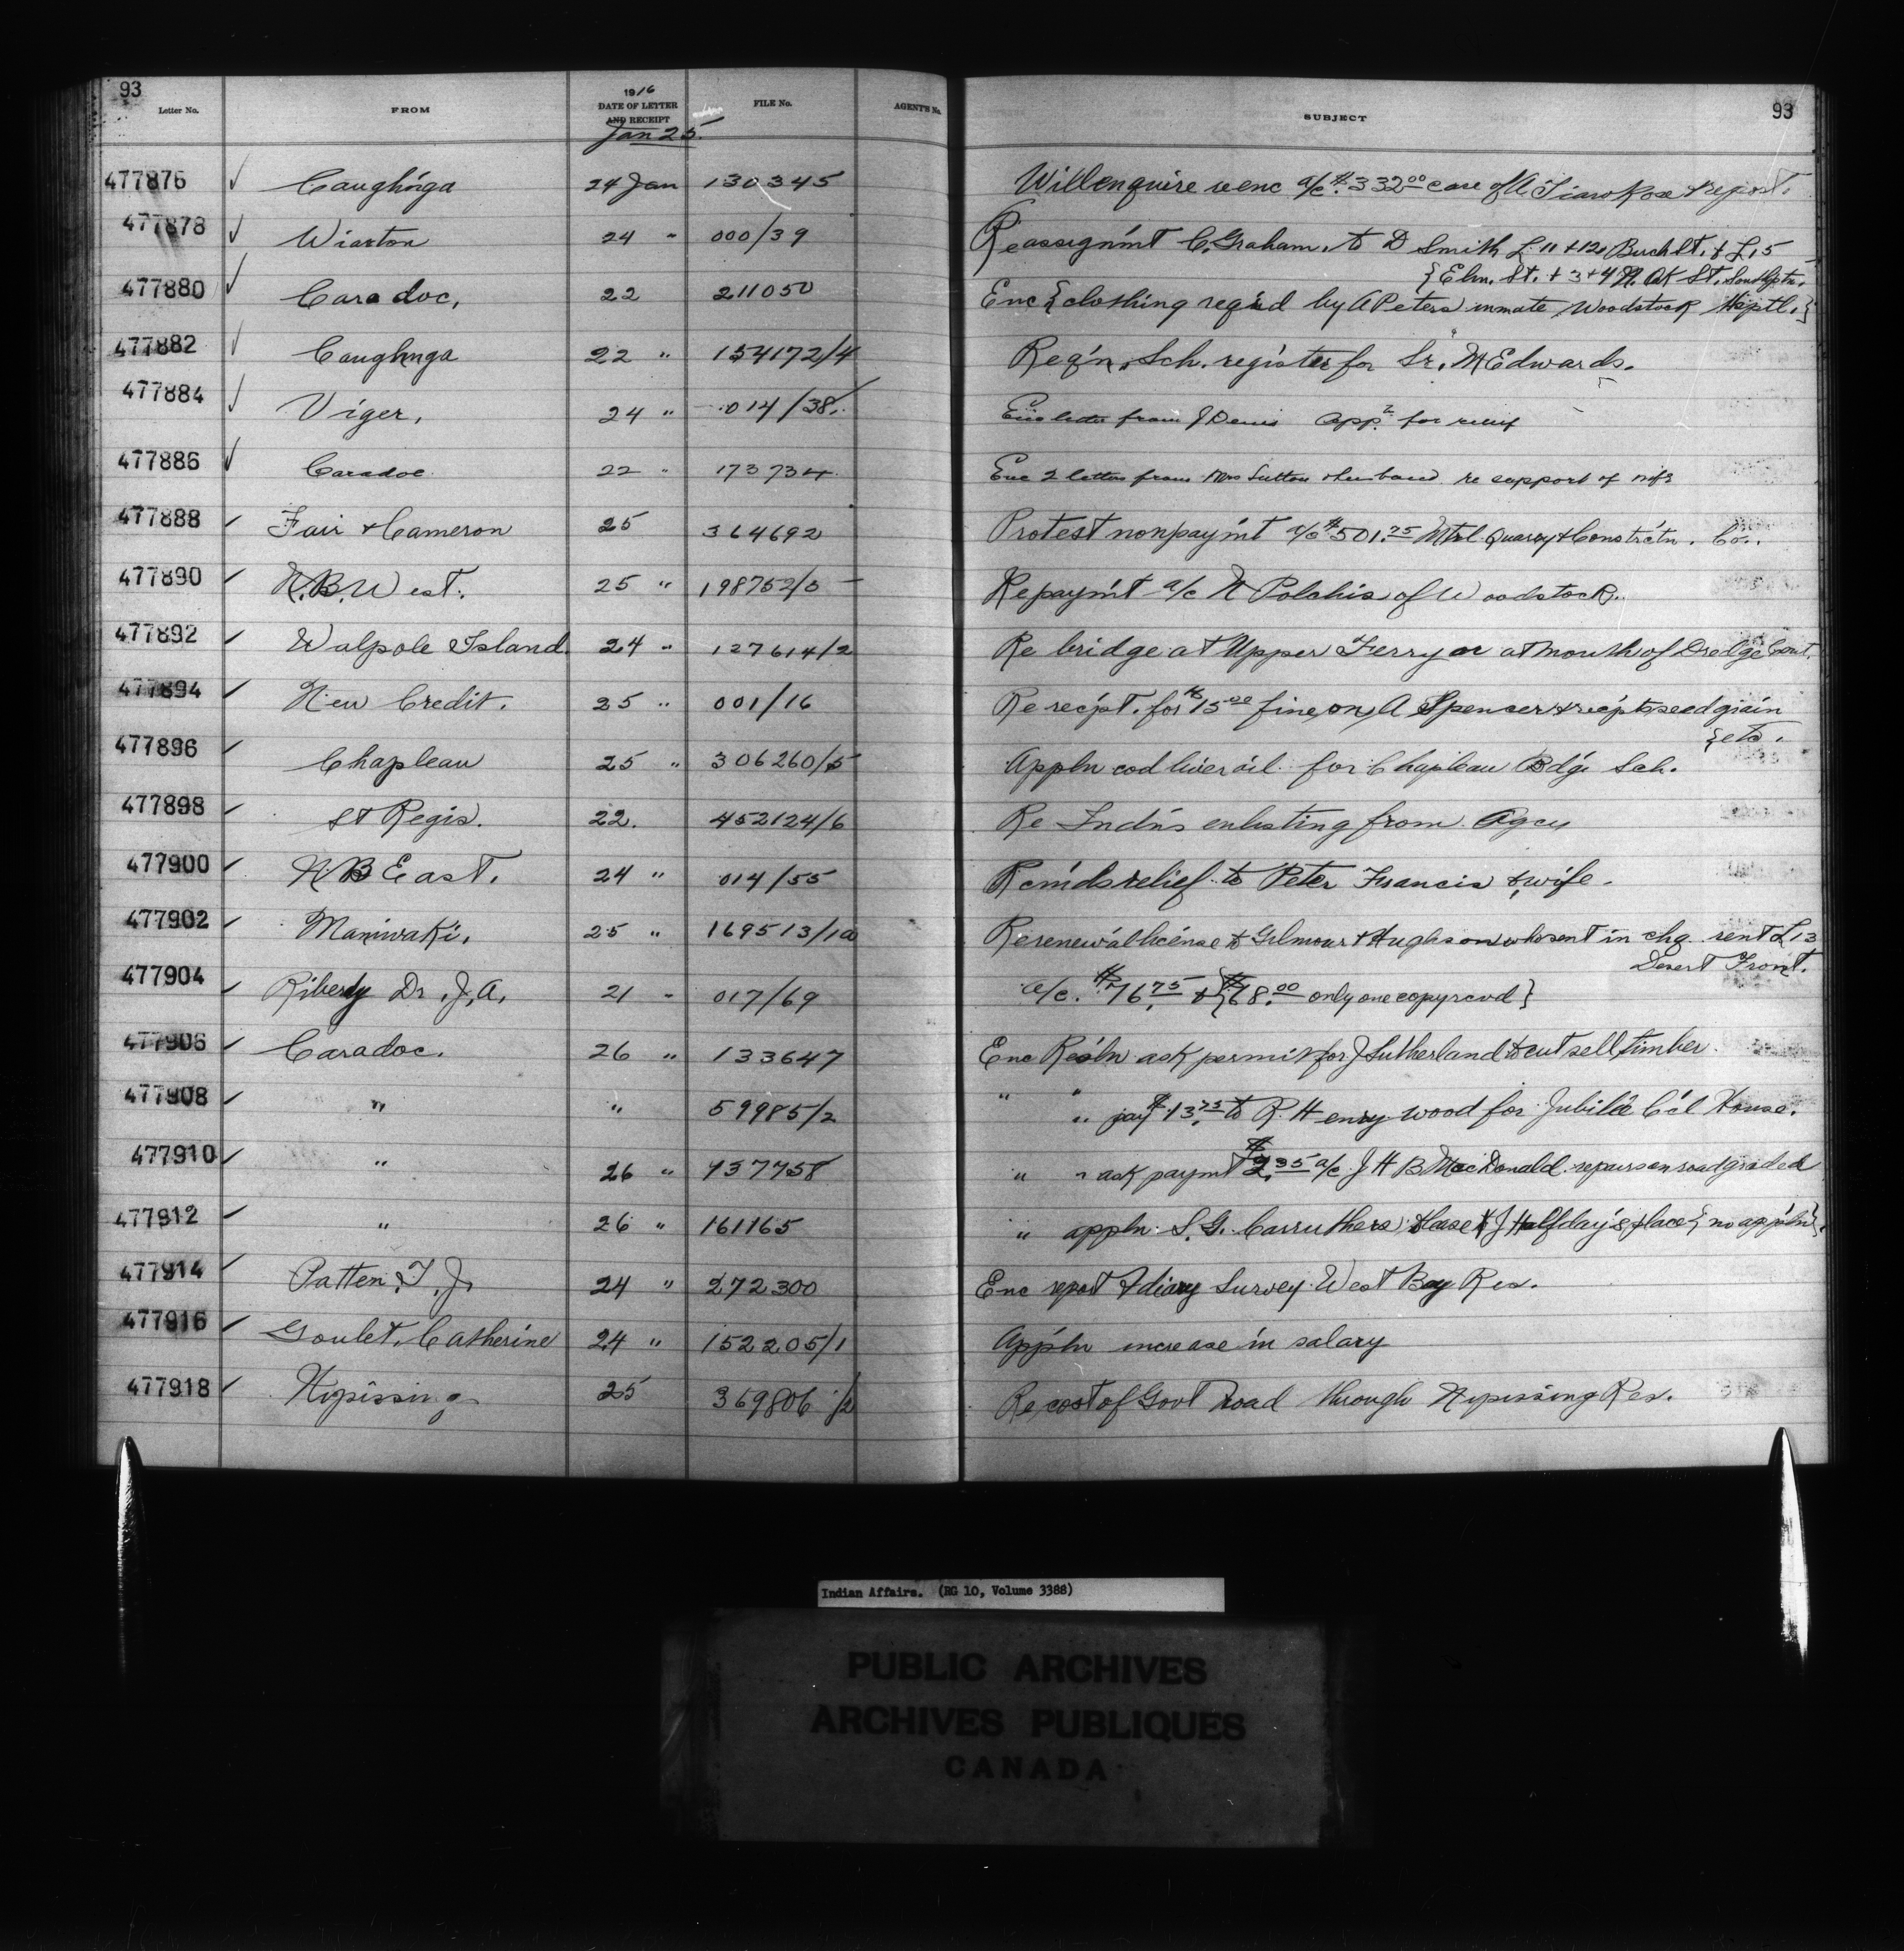 93
Letter No. FROM 1916 DATE OF LETTER AND RECEIPT FILE No. AGENT'S No. SUBJECT 93
Jan 25.
477876 ✓ Caughn'ga 24 Jan 130345 Will enquire re enc a/c. $332.00 case of A report.
477878 ✓ Wiarton 24 " 000/39 Re assignm't C. Graham. to D Smith L. 11 + 12, St. + L, 5
{Elm. St. + 3 + 4 N. Ok St. Southptn.
477880 ✓ Caradoc, 22 211050 Enc {clothing req'd by A Peters inmate Woodstock Hsptl.}
477882 ✓ Caughnga 22 " 154172/4 Req'n. Sch. register for Sr. M Edwards.
477884 ✓ Viger, 24 " 014/38. Enc letter from J Denis App. for relief
477886 ✓ Caradoc 22 " 173734 Enc 2 letters from Mrs Sutton & husband re support of wife
477888 ✓ Fair & Cameron 25 364692 Protest nonpaym't a/c $501.75 Mtrl Quarry & Constrc'tn. Co..
477890 ✓ N.B. West. 25 " 198752/5 Re paym't a/c N Polchis of Woodstock.
477892 ✓ Walpole Island 24 " 127614/2 Re bridge at Upper Ferry or at mouth of Dredge Cout.
477894 ✓ New Credit. 25 " 001/16 Re rec'pt. for $15.00 fine on A Spencer & rec'pts seed grain
{etc.
477896 ✓ Chapleau 25 " 306260/5 Appln cod liver oil for Chapleau Bd'g Sch.
477898 ✓ St Regis. 22. 452124/6 Re Ind'ns enlisting from Agcy
477900 ✓ N B East. 24 " 014/55 Rcm'ds relief to Peter Francis & wife.
477902 ✓ Maniwaki, 25 " 169513/1a Re renew'al license to Gilmour & Hughson who sent in chq. rent L 13
Desert Front.
477904 ✓ Riberdy Dr. J. A. 21 " 017/69 a/c. $76.75 & {$68.00 only one copy rcvd}
477906 ✓ Caradoc. 26 " 133647 Enc Res'ln ask permit for J Sutherland to cut sell timber.
477908 ✓ " " 59985/2 " " " pay $13.75 to R. Henry wood for Jubilee C'cl House.
477910 ✓ " 26 " 437758 " " ask paymt $2.35 a/c. J H B MacDonald. repairs on road grader
477912 ✓ " 26 " 161165 " appln. S. G. Carruthers lease J Halfday's place {no appln}.
477914 ✓ Patten, T. J. 24 " 272300 Enc report & diary Survey West Bay Res.
477916 ✓ Goulet. Catherine 24 " 152205/1 App'ln increase in salary
477918 ✓ Nipissing 25 369806/2 Re cost of Govt road through Nipissing Res.
Indian Affairs. (RG 10, Volume 3388)
PUBLIC ARCHIVES
ARCHIVES PUBLIQUES
CANADA